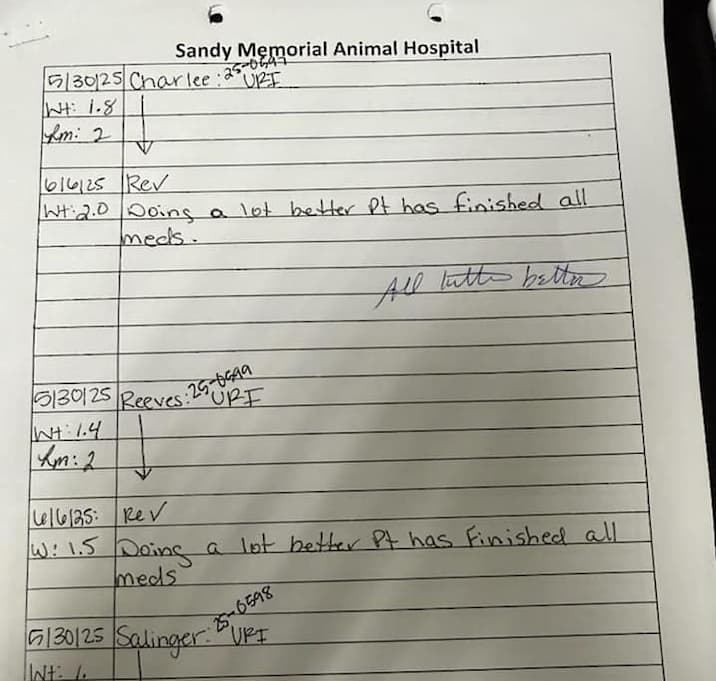 Sandy Memorial Animal Hospital
5/30/25 Charlee: 25-0597 URI
Wt: 1.8
Rm: 2
6/6/25 Rev
Wt: 2.0 Doing a lot better Pt has finished all
meds.
All kittens better
5/30/25 Reeves: 25-0599 URI
Wt: 1.4
Rm: 2
6/6/25: Rev
W: 1.5 Doing a lot better Pt has Finished all
meds
5/30/25 Salinger: 25-0598 URI
Wt: 1.